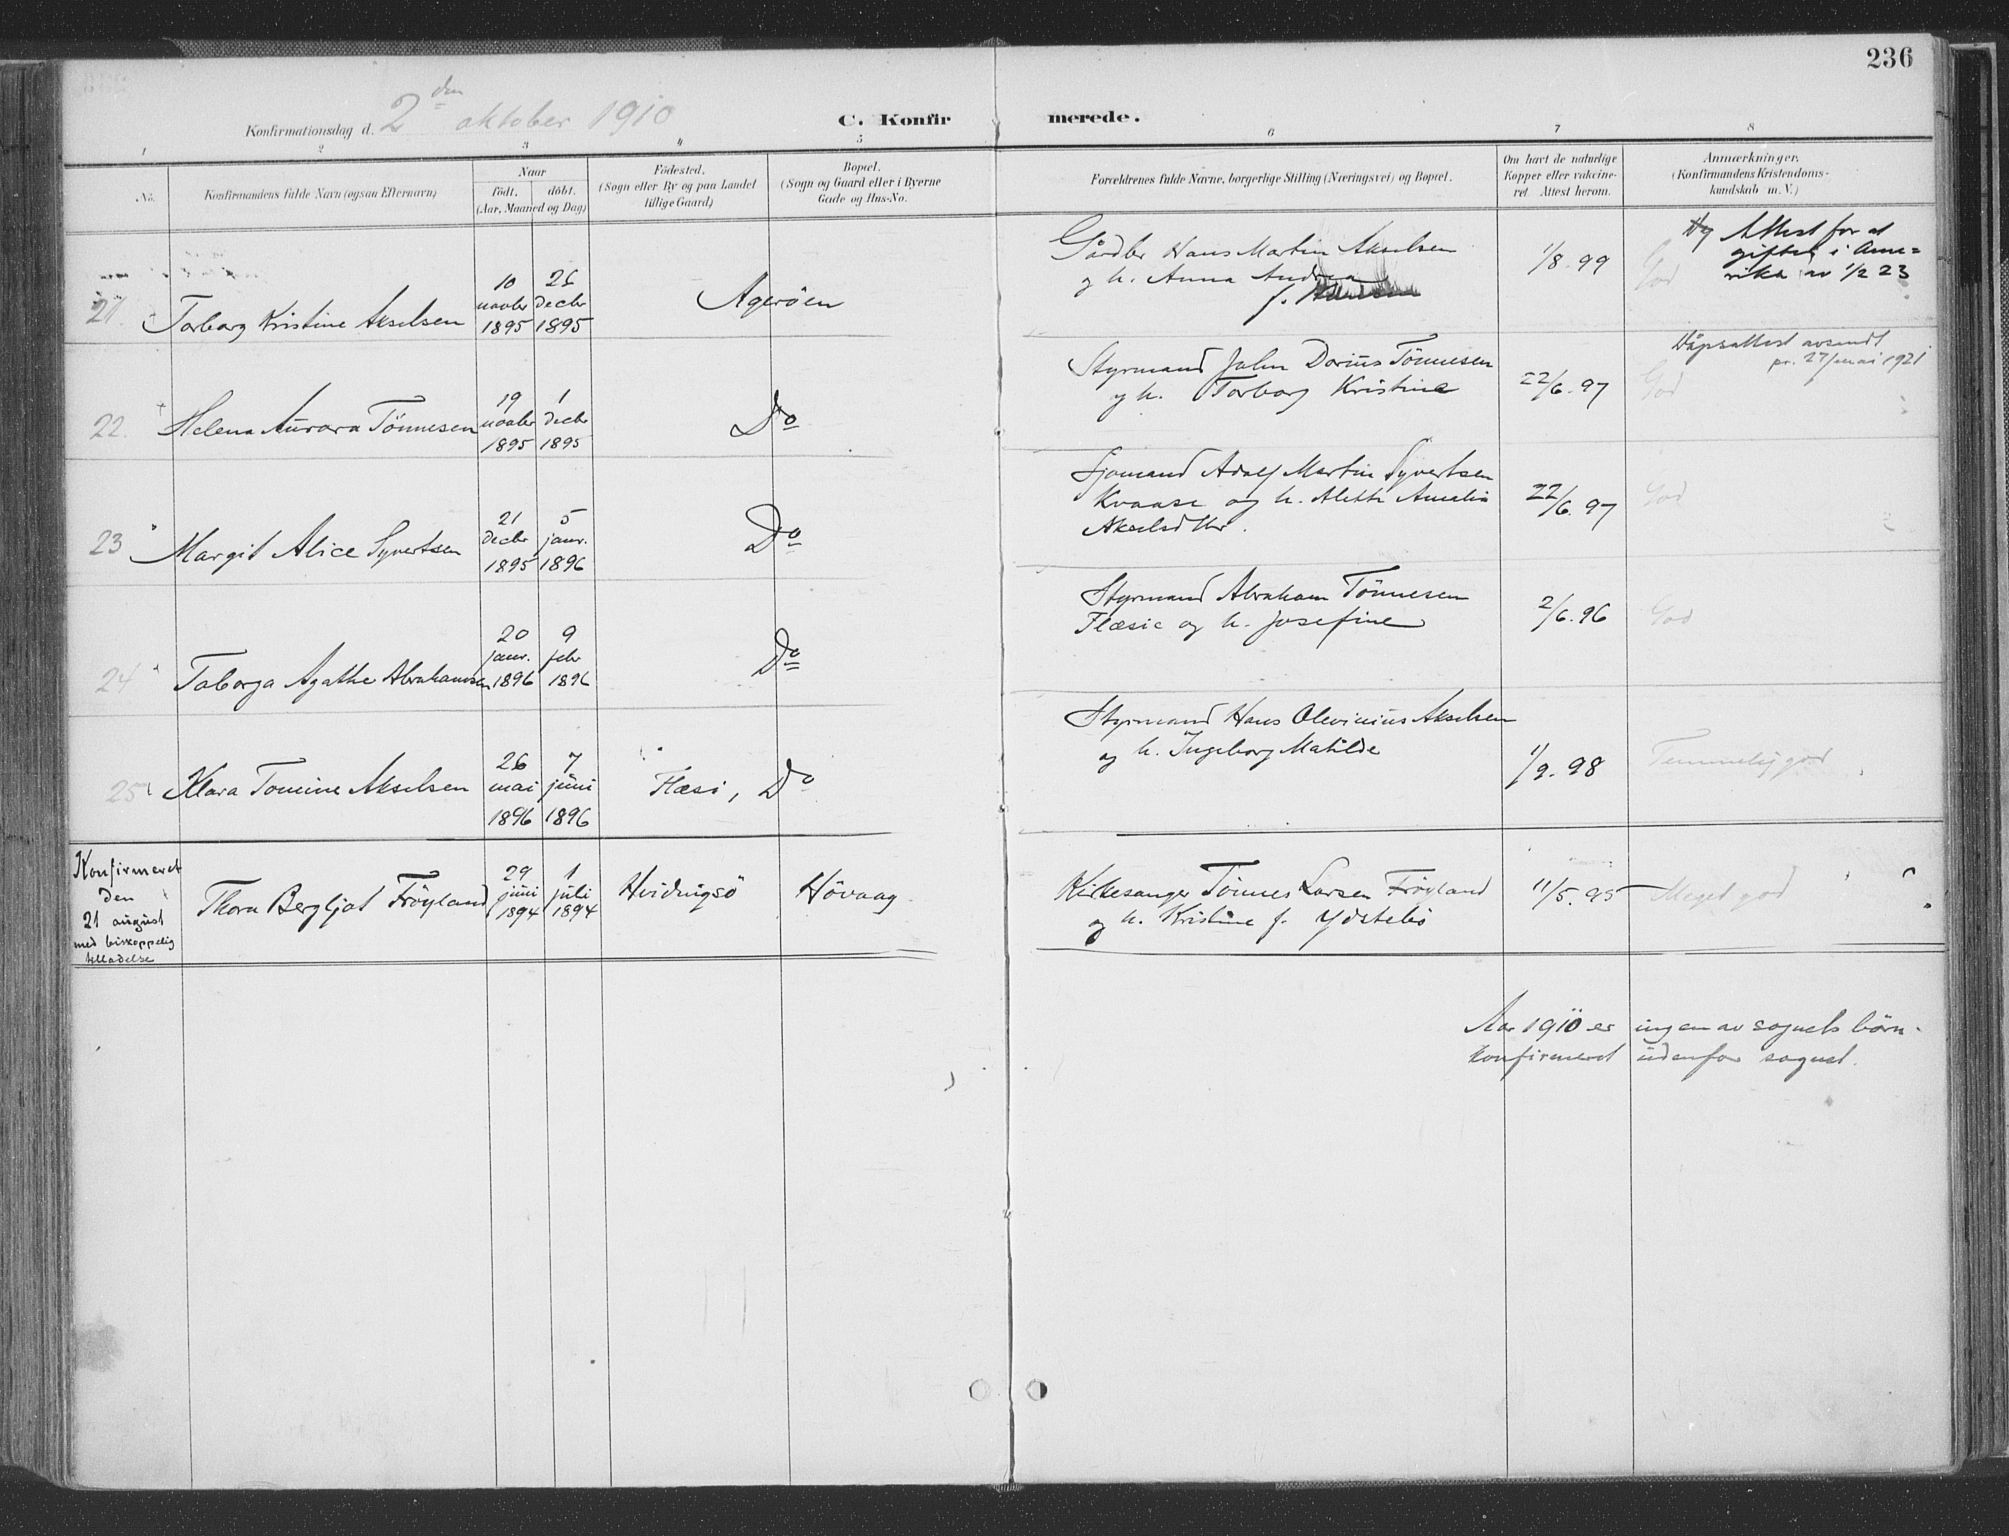 236
Konfirmationsdag d. 2den oktober 1910
C. Konfirmerede.
1 2 3 4 5 6 7 8
No.
Konfirmandens fulde Navn (ogsaa Efternavn)
Naar
født. døbt.
(Aar, Maaned og Dag)
Fødested.
(Sogn eller By og paa Landet
tillige Gaard)
Bopæl.
(Sogn og Gaard eller i Byerne
Gade og Hus-No.
Forældrenes fulde Navne, borgerlige Stilling (Næringsvei) og Bopæl.
Om havt de naturlige
Kopper eller vaccine-
ret Attest herom.
Anmærkninger.
(Konfirmandens Kristendoms-
kundskab m. V.)
21. Torborg Kristine Akselsen
10 novbr 1895
26 decbr 1895
Agerøen
Gårdbr Hans Martin Akselsen
og h. Anna Andrea
f.
1/8. 99
God
Attest for at
giftes i Ame-
rika av 1/2 23
22. Helena Aurora Tönnesen
19 novbr 1895
1 decbr 1895
Do
Styrmand John Dorius Tönnesen
og h. Torborg Kristine
22/6. 97
God
Dåpsattest avsendt
pr. 27/mai 1921
23 Margit Alice Syvertsen
21 decbr 1895
5 janr. 1896
Do
Sjömand Adolf Martin Syvertsen
Kvaase og h. Alette Amalie
Akselsdttr.
22/6. 97
God
24 Taborga Agathe Abrahamsen
20 janr. 1896
9 febr 1896
Do
Styrmand Abraham Tönnesen
Flæsie og h. Josefine
2/6. 96
God
25 Klara Tomine Akselsen
26 mai 1896
7 juni 1896
Flæsi, Do
Styrmand Hans Olevinius Akselsen
og h. Ingeborg Matilde
1/9. 98
Temmelig god
Konfirmeret
den
21 august
med biskoppelig
tilladelse
Thora Bergljot Fröyland
29 juni 1894
1 juli 1894
Hvidingsö
Hövaag
Kirkesanger Tönnes Larsen Fröyland
og h. Kristine f. Ydstebö
11/5. 95
Meget god
Aar 1910 er ingen av sognets börn
konfirmeret udenfor sognet.